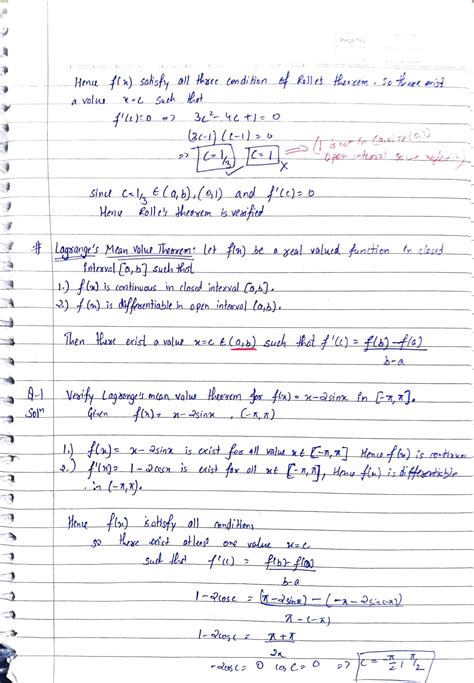 Hence f(x) satisfy all three condition of Rolle's theorem. So there exist
a value x=c such that
f'(c)=0 => 3c²-4c+1=0
(3c-1)(c-1)=0
=> c=1/3, c=1 x
(1 is not in (a,b) so (0,1)
open interval so we
since c=1/3 ∈ (a,b), (0,1) and f'(c)=0
Hence Rolle's theorem is verified
# Lagrange's Mean Value Theorem: Let f(x) be a real valued function in closed
interval [a,b] such that
1.) f(x) is continuous in closed interval [a,b].
2.) f(x) is differentiable in open interval (a,b).
Then there exist a value x=c ∈ (a,b) such that f'(c) = f(b)-f(a)
b-a
Q-1 Verify Lagrange's mean value theorem for f(x) = x-2sinx in [-π,π].
Solⁿ Given f(x) = x-2sinx, (-π,π)
1.) f(x) = x-2sinx is exist for all value x∈ [-π,π] Hence f(x) is continuous
2.) f'(x) = 1-2cosx is exist for all x∈ [-π,π], Hence f(x) is differentiable
in (-π,π).
Hence f(x) satisfy all conditions
so there exist atleast one value x=c
such that f'(c) = f(b)-f(a)
b-a
1-2cosc = (π-2sinπ) - (-π-2sin(-π))
π-(-π)
1-2cosc = π+π
2π
-2cosc = 0 cosc = 0 => c = -π/2, π/2